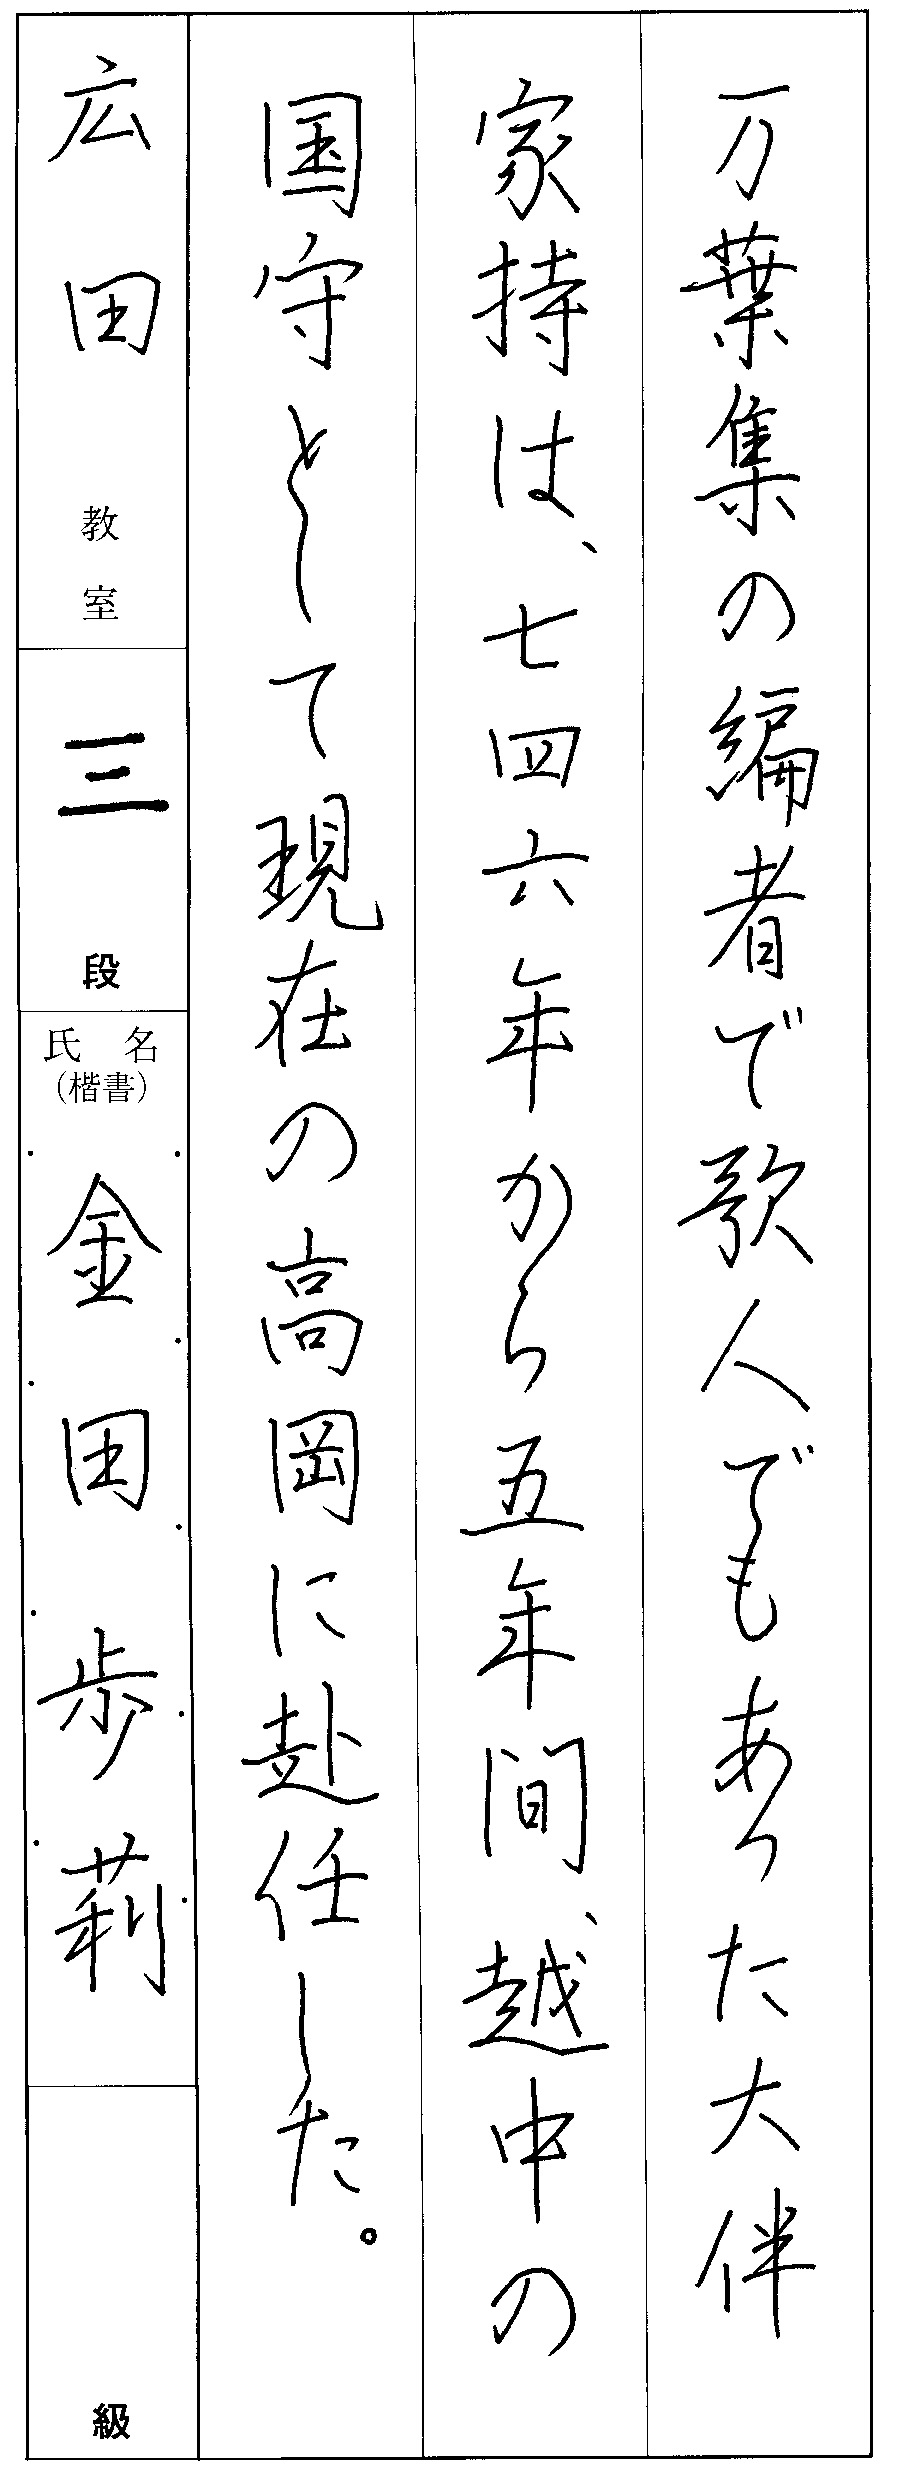 万葉集の編者で歌人でもあった大伴
家持は、七四六年から五年間、越中の
国守として現在の高岡に赴任した。
広田教室
三段
氏名
(楷書)
金田歩莉
級